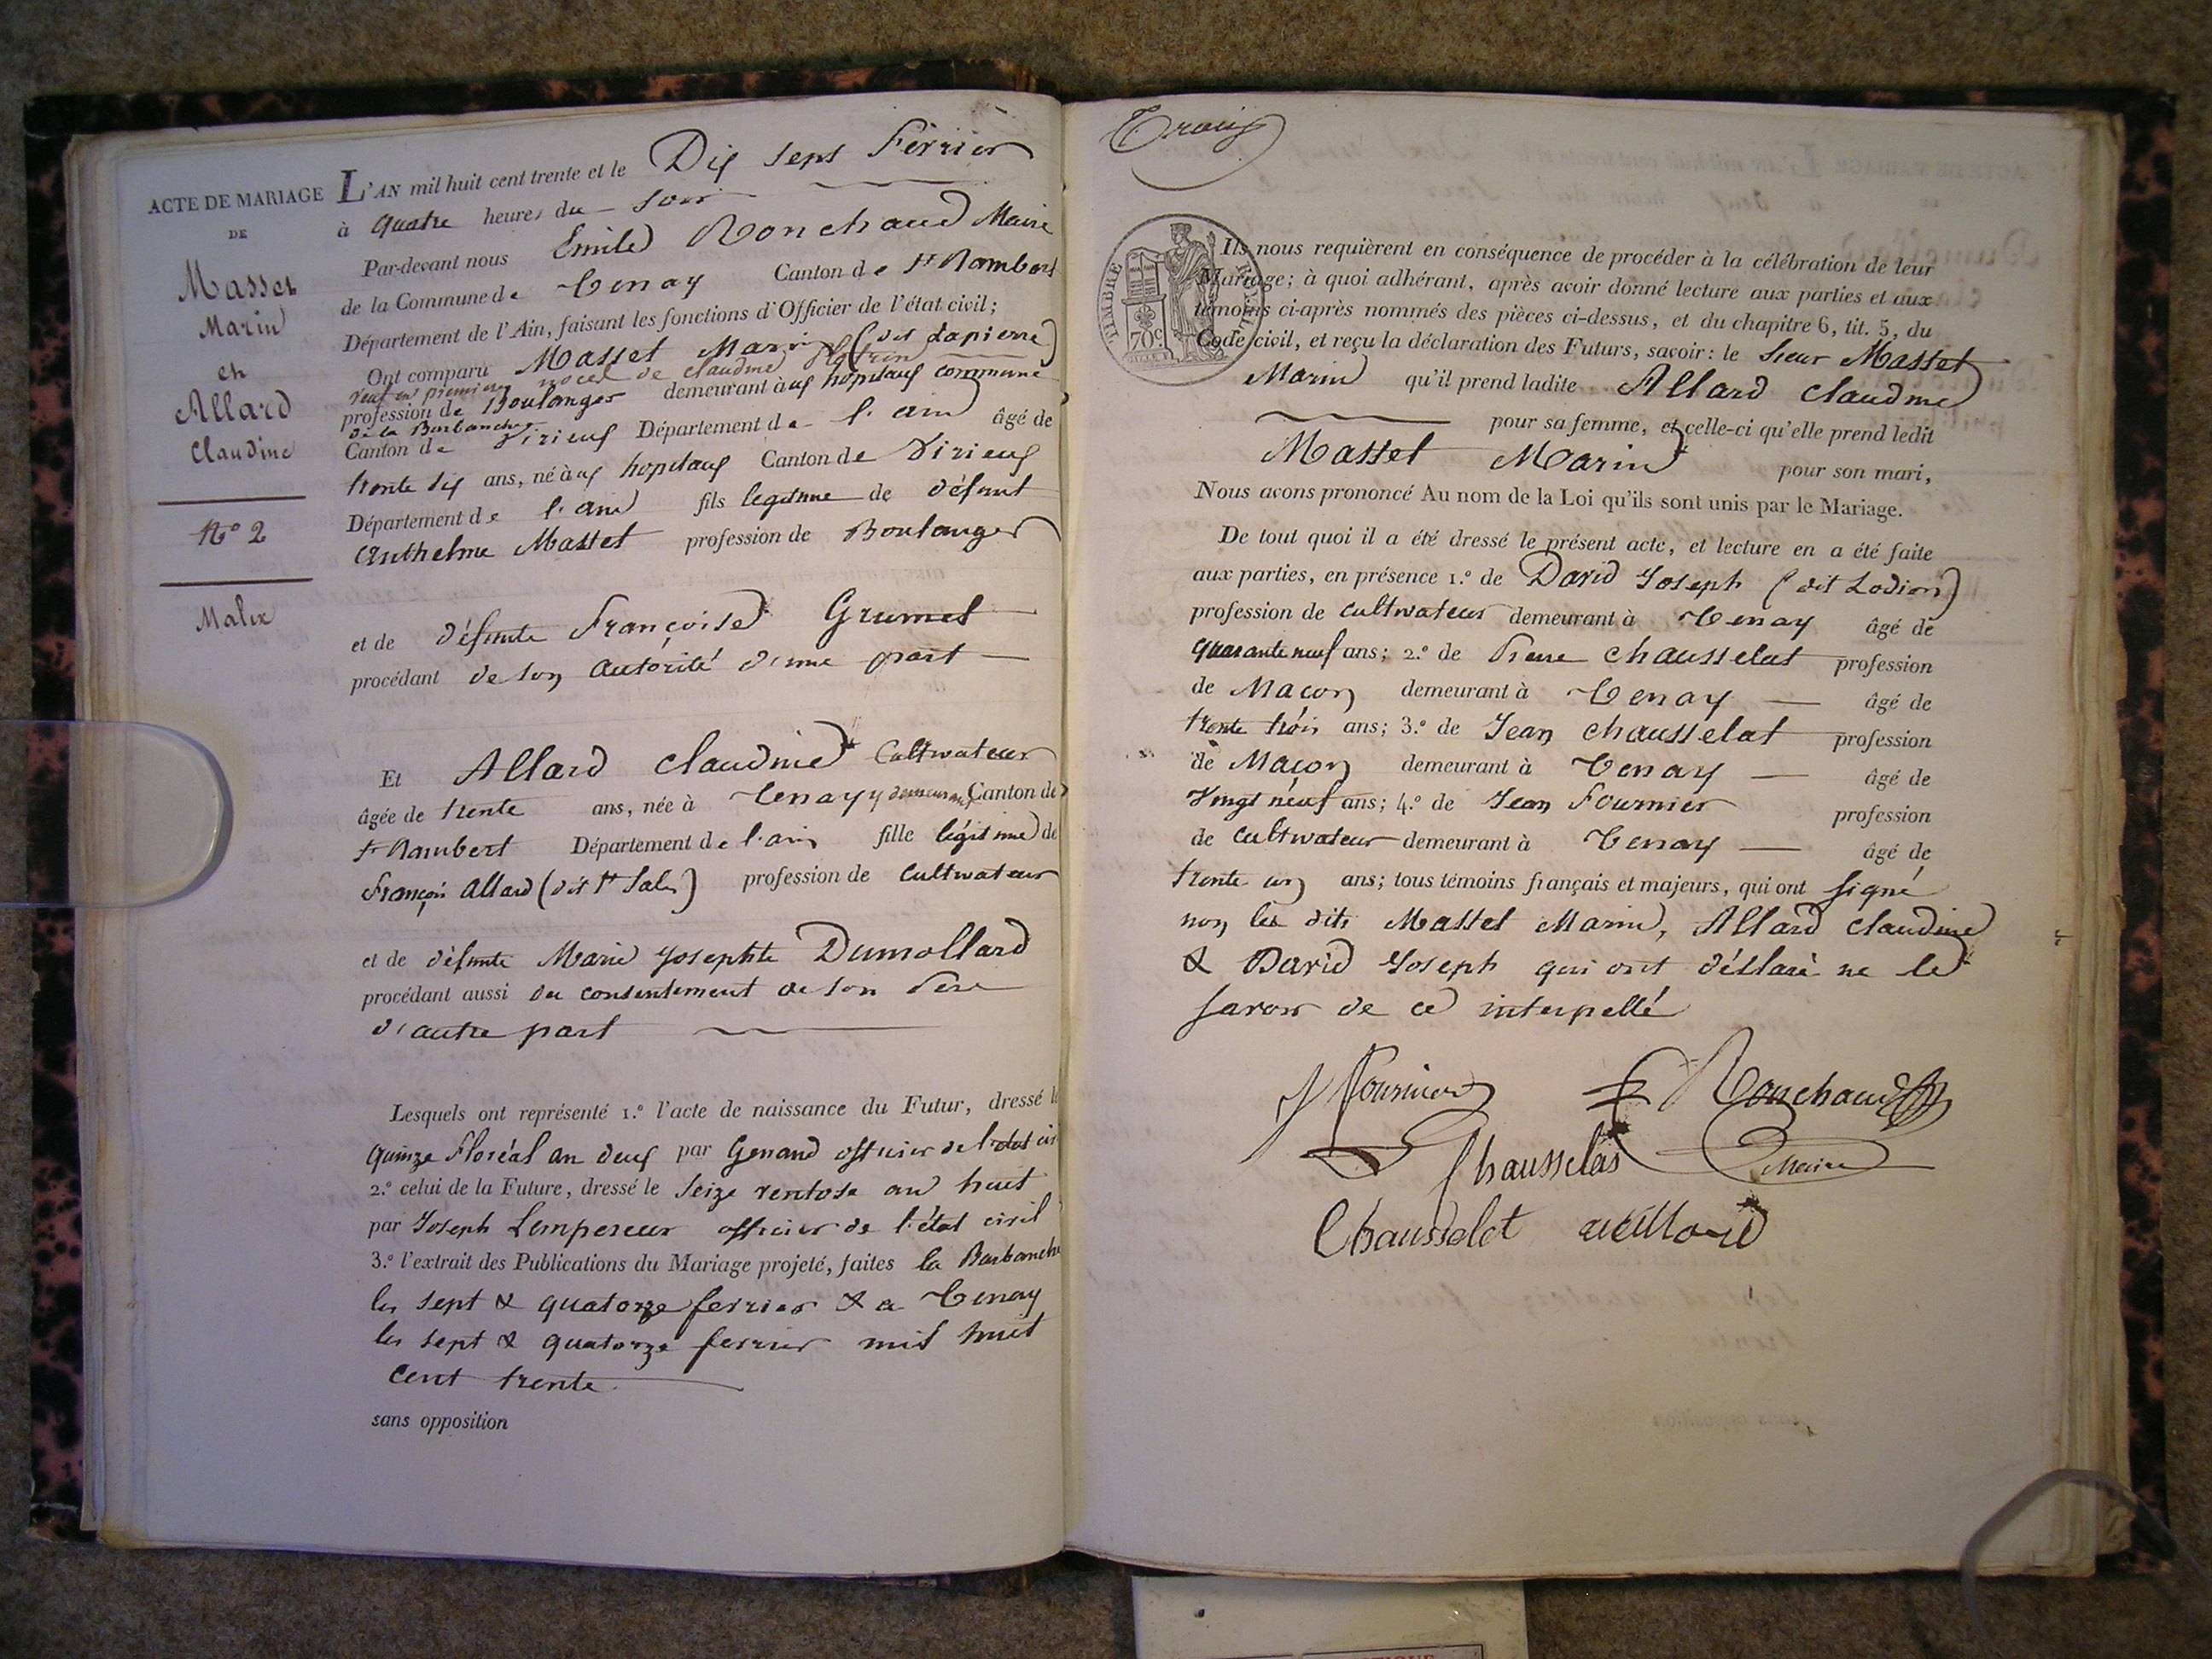 ACTE DE MARIAGE
DE
Masset
Marin
et
Allard
Claudine
No 2
Malix
L'AN mil huit cent trente et le Dix sept Février
à quatre heures du soir
Par-devant nous Emile Ronchaud Maire
de la Commune de Tenay Canton de St Rambert
Département de l'Ain, faisant les fonctions d'Officier de l'état civil;
Ont comparu Masset Marin (dit Lapierre)
veuf en premières noces de claudine
profession de Boulanger demeurant aux hopitaux commune
de la Burbanche
Canton de Virieux Département de l'ain âgé de
trente six ans, né aux hopitaux Canton de Virieux
Département de l'ain fils legitime de défunt
Anthelme Masset profession de Boulanger
et de défunte Françoise Grumet
procédant de son autorité d'une part
Et Allard Claudine Cultivateur
âgée de trente ans, née à Tenay y demeurant Canton de
St Rambert Département de l'ain fille légitime de
François Allard (dit ) profession de Cultivateur
et de défunte Marie Josephte Dumollard
procédant aussi du consentement de son Père
d'autre part
Lesquels ont représenté 1.º l'acte de naissance du Futur, dressé le
quinze Floréal an deux par Genand officier de l'état civ
2.º celui de la Future, dressé le Seize ventose an huit
par Joseph Lempereur officier de l'état civil
3.º l'extrait des Publications du Mariage projeté, faites la Burbanche
les sept & quatorze fevrier & a Tenay
les sept & quatorze fevrier mil huit
cent trente
sans opposition
Trois
TIMBRE ROYAL
70c
Ils nous requièrent en conséquence de procéder à la célébration de leur
Mariage; à quoi adhérant, après avoir donné lecture aux parties et aux
témoins ci-après nommés des pièces ci-dessus, et du chapitre 6, tit. 5, du
Code civil, et reçu la déclaration des Futurs, savoir: le Sieur Masset
Marin qu'il prend ladite Allard Claudine
pour sa femme, et celle-ci qu'elle prend ledit
Masset Marin pour son mari,
Nous avons prononcé Au nom de la Loi qu'ils sont unis par le Mariage.
De tout quoi il a été dressé le présent acte, et lecture en a été faite
aux parties, en présence 1.º de David Joseph (dit Lodion)
profession de cultivateur demeurant à Tenay âgé de
quarante neuf ans; 2.º de Pierre Chausselat profession
de Maçon demeurant à Tenay âgé de
trente trois ans; 3.º de Jean Chausselat profession
de Maçon demeurant à Tenay âgé de
vingt neuf ans; 4.º de Jean Fournier profession
de Cultivateur demeurant à Tenay âgé de
trente un ans; tous témoins français et majeurs, qui ont signé
non les dits Masset Marin, Allard Claudine
& David Joseph qui ont déclaré ne le
savoir de ce interpellé
J Fournier E Ronchaud
Chausselas Maire
Chausselet